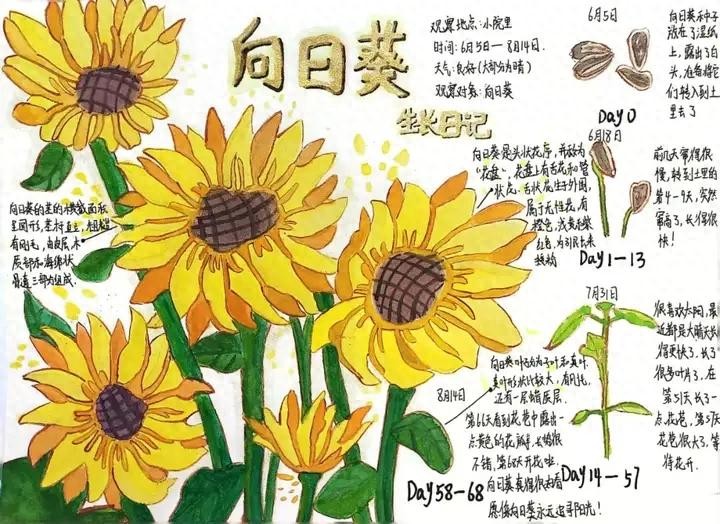 向日葵
生长日记
观察地点:小院里
时间:6月5日—8月14日.
天气:良好(大部分为晴)
观察对象:向日葵
6月5日
Day 0
向日葵种子
放在了湿纸
上,露出了白
头,准备将它
们转入到土
里去了
6月18日
Day 1-13
前几天窜得很
慢,转到土里的
第4-9天,突然
窜高了,长得很
快!
向日葵是头状花序,并称为
"花盘",花盘上有舌花和管
状花.舌状花生于外围,
属于无性花,有
橙色,淡黄和紫
红色,为引昆虫来
向日葵的茎的横截面积
呈圆形,茎杆直立,粗糙
有刚毛,由皮层,木
质部和海绵状
髓三部分组成.
7月31日
Day 14-57
很喜欢太阳,最
近都是大晴天长
得更快了,长了
很多叶片了,在
第51天长了一
点花苞,第57天
花苞很大了,等
待花开.
8月14日
向日葵叶分为子叶和真叶.
真叶形状比较大,有刚毛,
还有一层蜡质层.
第66天看到花苞中露出一
点黄色的花瓣,长得很
不错,第68天开花啦,
向日葵真得很好看
愿像向日葵永远追寻阳光!
Day 58-68